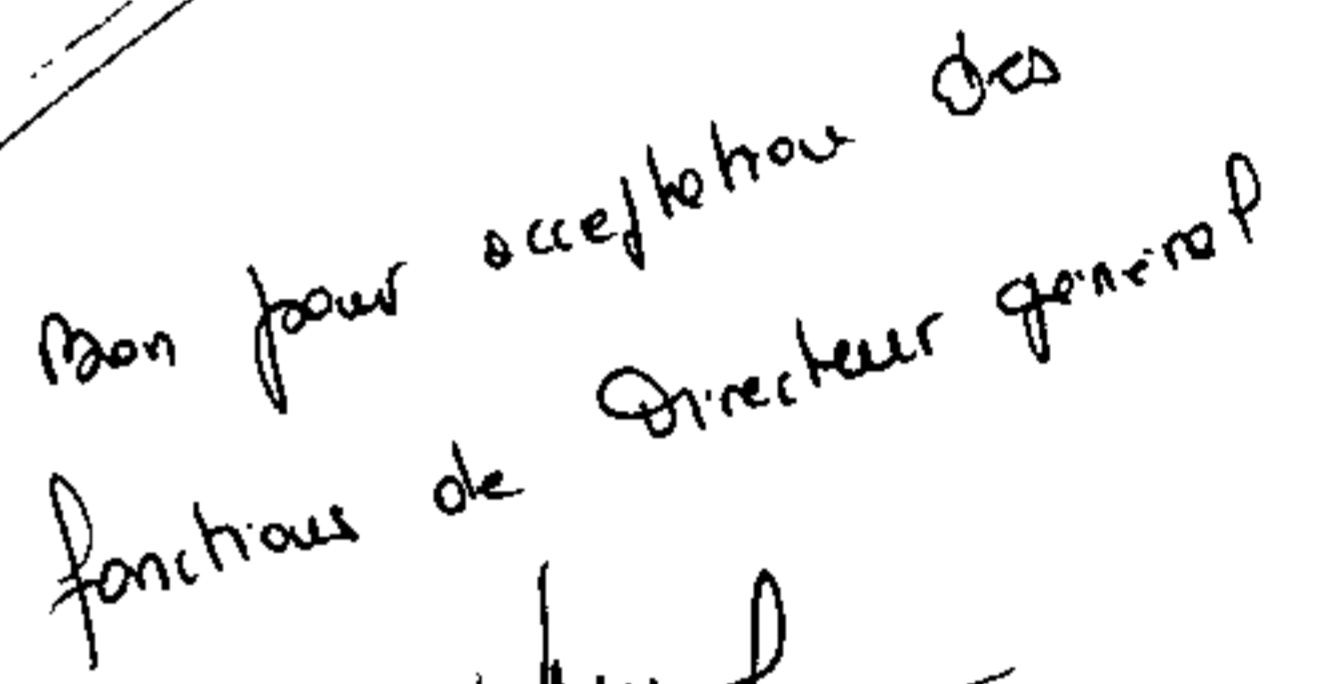 Bon pour acceptation des
fonctions de Directeur général